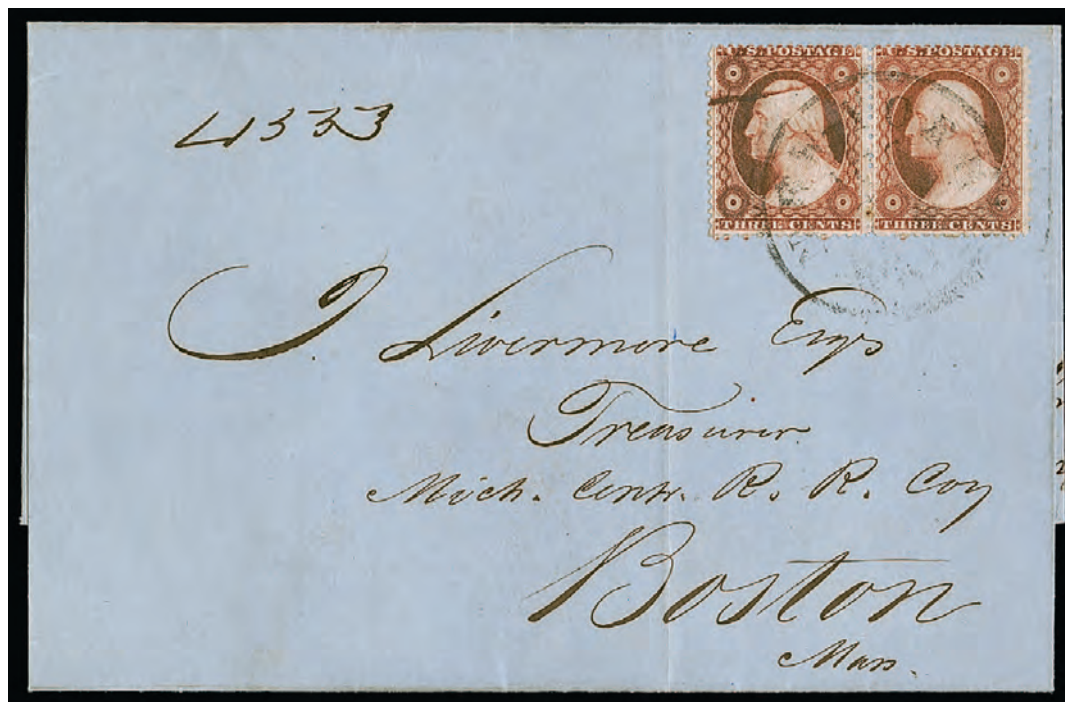 4333
U.S. POSTAGE U.S. POSTAGE
THREE CENTS THREE CENTS
J. Livermore Esq
Treasurer
Mich. Centr. R. R. Coy
Boston
Mass.